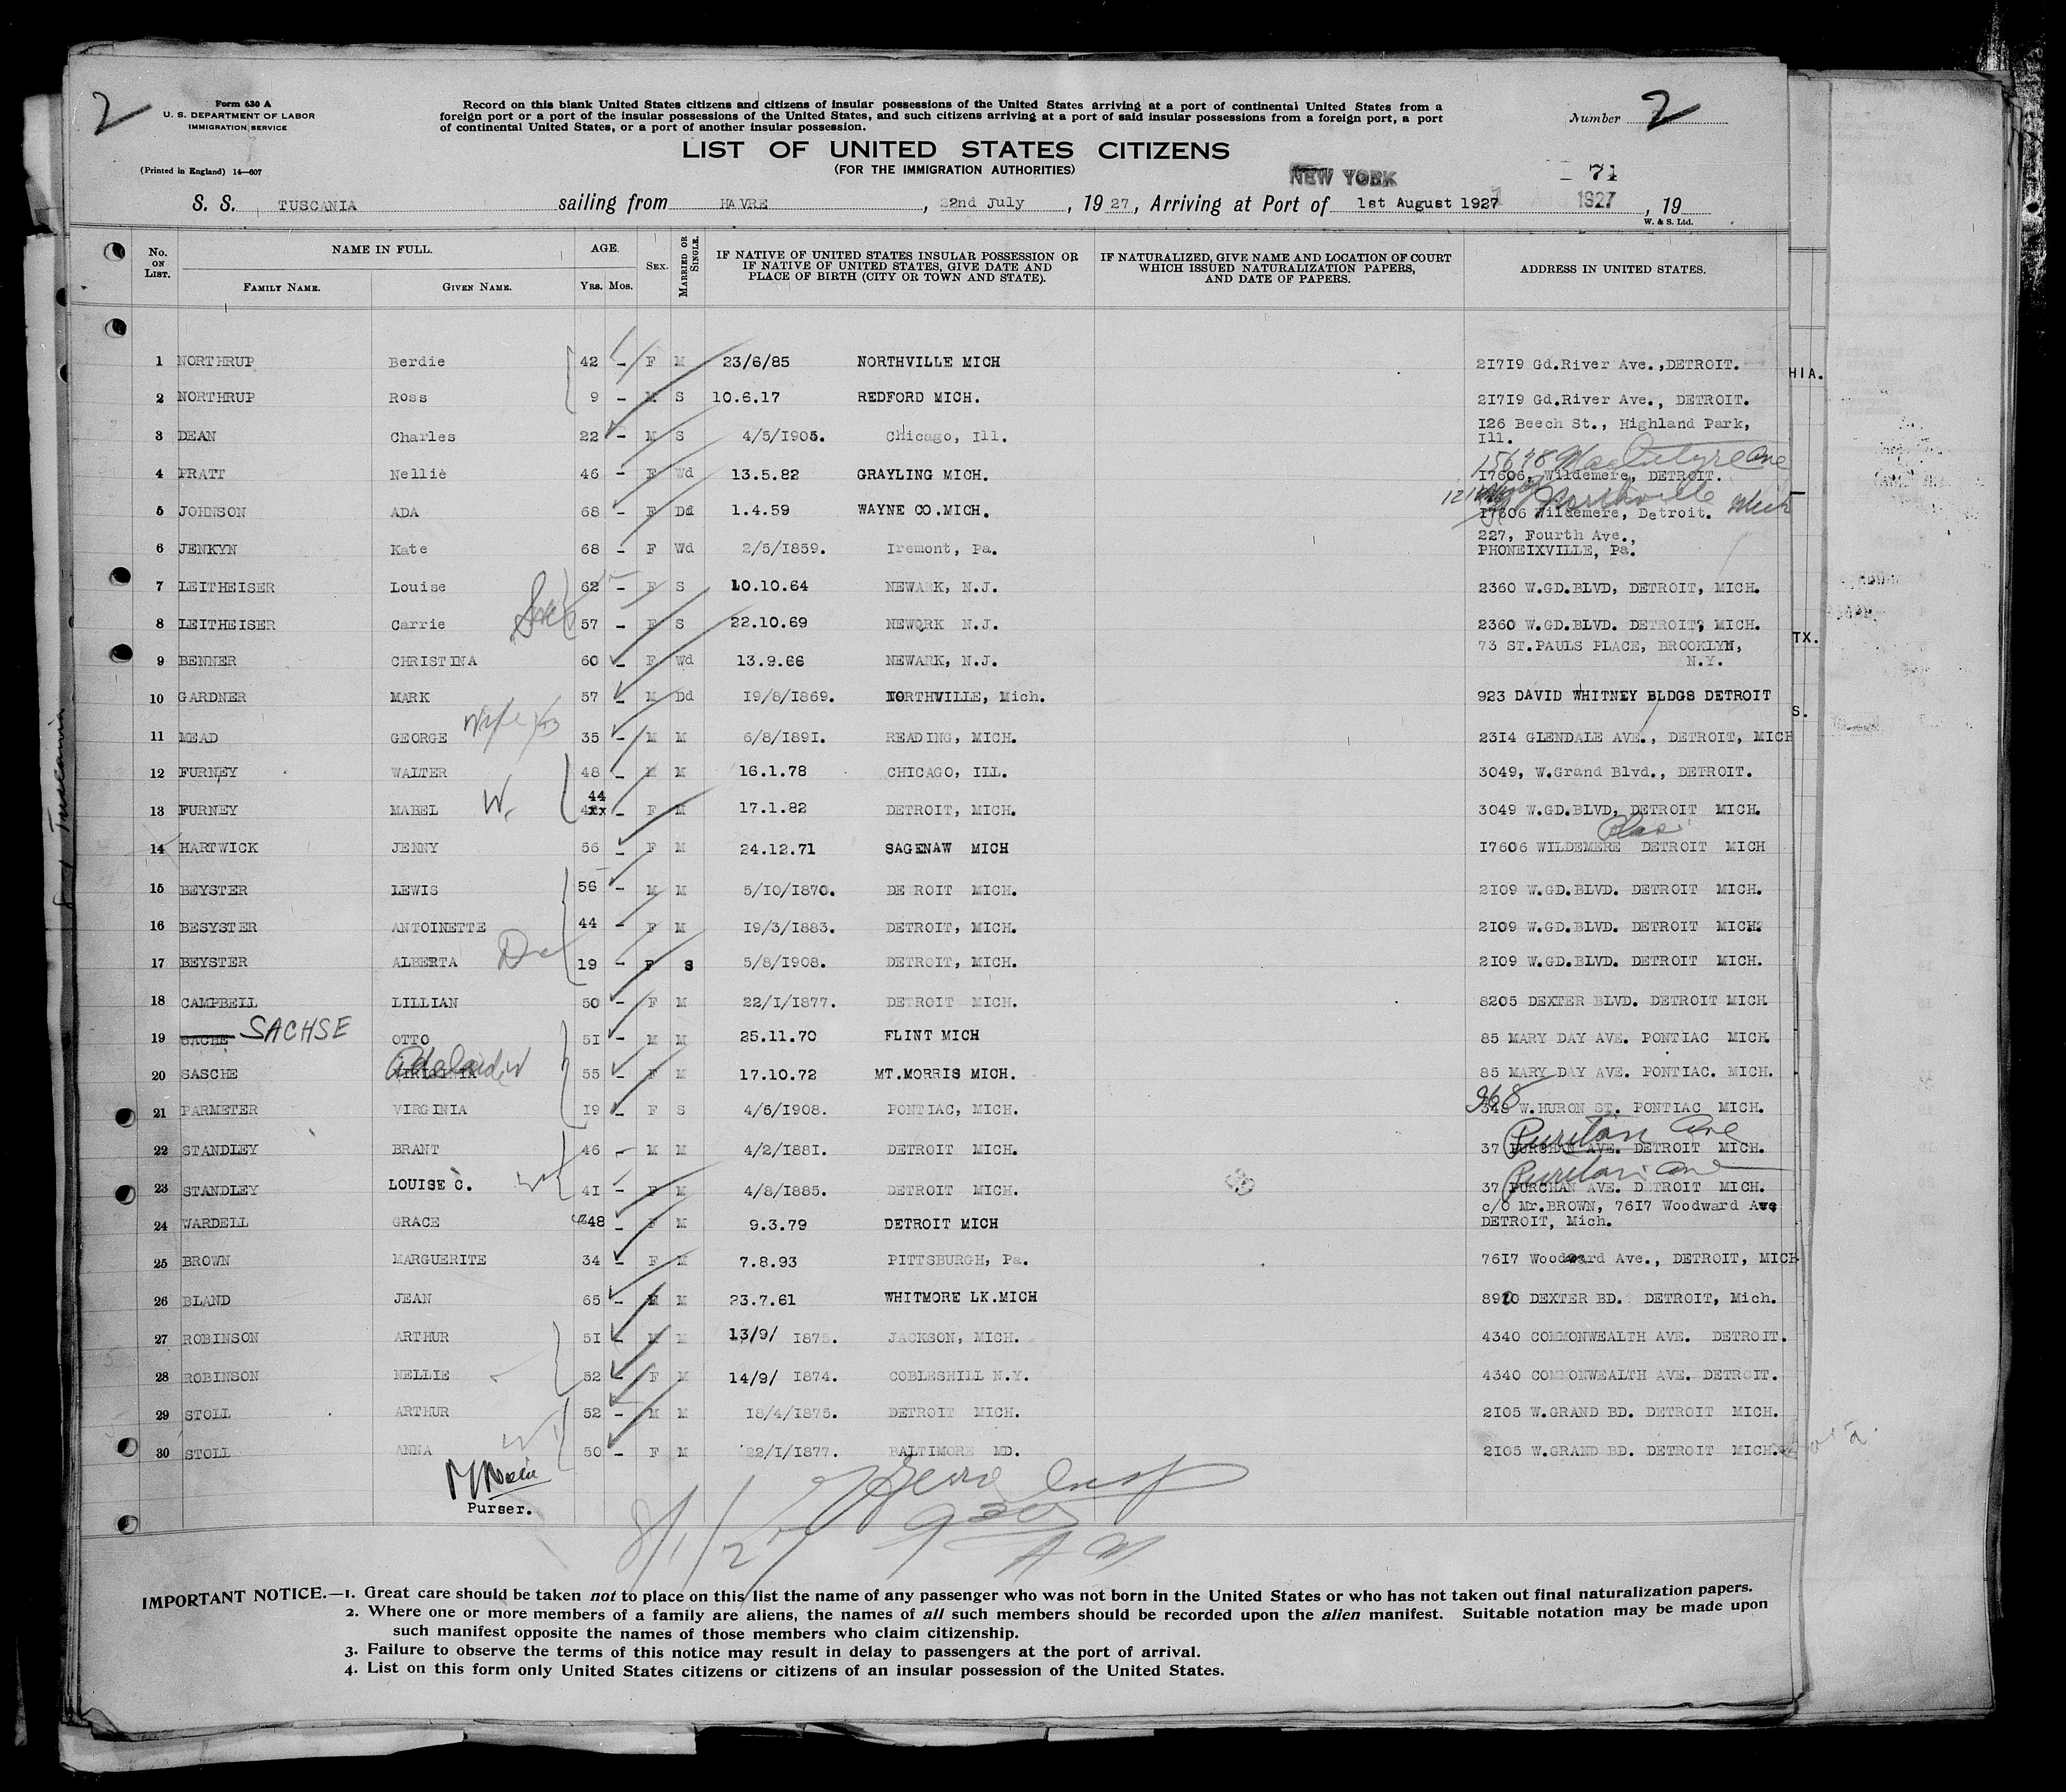 2
Form 630 A
U. S. DEPARTMENT OF LABOR
IMMIGRATION SERVICE
(Printed in England) 14—607
Record on this blank United States citizens and citizens of insular possessions of the United States arriving at a port of continental United States from a
foreign port or a port of the insular possessions of the United States, and such citizens arriving at a port of said insular possessions from a foreign port, a port
of continental United States, or a port of another insular possession.
Number 2
LIST OF UNITED STATES CITIZENS
(FOR THE IMMIGRATION AUTHORITIES)
NEW YORK
71
S. S. TUSCANIA sailing from HAVRE, 22nd July, 1927, Arriving at Port of 1st August 1927 1927, 19
W. & S. Ltd.
No. ON LIST. NAME IN FULL. FAMILY NAME. GIVEN NAME. AGE. YRS. MOS. SEX. MARRIED OR SINGLE. IF NATIVE OF UNITED STATES INSULAR POSSESSION OR IF NATIVE OF UNITED STATES, GIVE DATE AND PLACE OF BIRTH (CITY OR TOWN AND STATE). IF NATURALIZED, GIVE NAME AND LOCATION OF COURT WHICH ISSUED NATURALIZATION PAPERS, AND DATE OF PAPERS. ADDRESS IN UNITED STATES.
1 NORTHRUP Berdie 42 – F M 23/6/85 NORTHVILLE MICH 21719 Gd.River Ave.,DETROIT.
2 NORTHRUP Ross 9 – M S 10.6.17 REDFORD MICH. 21719 Gd.River Ave., DETROIT.
3 DEAN Charles 22 – M S 4/5/1905. Chicago, Ill. 126 Beech St., Highland Park,
Ill.
15698 MacIntyre Ave
4 PRATT Nellie 46 – F Wd 13.5.82 GRAYLING MICH. 17606, Wildemere, DETROIT.
Northville Mich
5 JOHNSON ADA 68 – F Dd 1.4.59 WAYNE CO.MICH. 17606 Wildemere, Detroit.
6 JENKYN Kate 68 – F Wd 2/5/1859. Iremont, Pa. 227, Fourth Ave.,
PHONEIXVILLE, Pa.
7 LEITHEISER Louise 62 – F S 10.10.64 NEWARK, N.J. 2360 W.GD.BLVD, DETROIT, MICH.
8 LEITHEISER Carrie 57 – F S 22.10.69 NEWQRK N.J. 2360 W.GD.BLVD. DETROIT, MICH.
9 BENNER CHRISTINA 60 – F Wd 13.9.66 NEWARK, N.J. 73 ST.PAULS PLACE, BROOKLYN,
N.Y.
10 GARDNER MARK 57 – M Dd 19/8/1869. NORTHVILLE, Mich. 923 DAVID WHITNEY BLDGS DETROIT
11 MEAD GEORGE wife 35 – M M 6/8/1891. READING, MICH. 2314 GLENDALE AVE., DETROIT, MICH
12 FURNEY WALTER 48 – M M 16.1.78 CHICAGO, ILL. 3049, W.Grand Blvd., DETROIT.
13 FURNEY MABEL W. 44 F M 17.1.82 DETROIT, MICH. 3049 W.GD.BLVD, DETROIT MICH.
14 HARTWICK JENNY 56 – F M 24.12.71 SAGENAW MICH 17606 WILDEMERE DETROIT MICH
15 BEYSTER LEWIS 56 – M M 5/10/1870. DETROIT MICH. 2109 W.GD.BLVD. DETROIT MICH.
16 BESYSTER ANTOINETTE 44 – F M 19/3/1883. DETROIT, MICH. 2109 W.GD.BLVD. DETROIT MICH.
17 BEYSTER ALBERTA 19 – F S 5/8/1908. DETROIT, MICH. 2109 W.GD.BLVD. DETROIT MICH.
18 CAMPBELL LILLIAN 50 – F M 22/1/1877. DETROIT MICH. 8205 DEXTER BLVD. DETROIT MICH
19 SACHE SACHSE OTTO 51 – M M 25.11.70 FLINT MICH 85 MARY DAY AVE. PONTIAC MICH.
20 SASCHE Adelaide W 55 – F M 17.10.72 MT.MORRIS MICH. 85 MARY DAY AVE. PONTIAC. MICH.
21 PARMETER VIRGINIA 19 – F S 4/6/1908. PONTIAC, MICH. 968 W.HURON ST. PONTIAC MICH.
Puritan Ave
22 STANDLEY BRANT 46 – M M 4/2/1881. DETROIT MICH. 37 PURCHAN AVE. DETROIT MICH.
Puritan Ave
23 STANDLEY LOUISE C. W 41 – F M 4/8/1885. DETROIT MICH. 37 PURCHAN AVE. DETROIT MICH.
24 WARDELL GRACE 48 – F M 9.3.79 DETROIT MICH c/o Mr.BROWN, 7617 Woodward Ave
DETROIT, Mich.
25 BROWN MARGUERITE 34 – F M 7.8.93 PITTSBURGH, Pa. 7617 Woodward Ave., DETROIT, MICH
26 BLAND JEAN 65 – M M 23.7.61 WHITMORE LK.MICH 8920 DEXTER BD. DETROIT, Mich.
27 ROBINSON ARTHUR 51 – M M 13/9/ 1875. JACKSON, MICH. 4340 COMMONWEALTH AVE. DETROIT.
28 ROBINSON NELLIE 52 – F M 14/9/ 1874. COBLESHILL N.Y. 4340 COMMONWEALTH AVE. DETROIT.
29 STOLL ARTHUR 52 – M M 18/4/1875. DETROIT MICH. 2105 W.GRAND BD. DETROIT MICH.
30 STOLL ANNA W 50 – F M 22/1/1877. BALTIMORE MD. 2105 W.GRAND BD. DETROIT MICH.
Purser.
8/1/27
930
AM
IMPORTANT NOTICE.—1. Great care should be taken not to place on this list the name of any passenger who was not born in the United States or who has not taken out final naturalization papers.
2. Where one or more members of a family are aliens, the names of all such members should be recorded upon the alien manifest. Suitable notation may be made upon
such manifest opposite the names of those members who claim citizenship.
3. Failure to observe the terms of this notice may result in delay to passengers at the port of arrival.
4. List on this form only United States citizens or citizens of an insular possession of the United States.
HIA.
TX.
S.